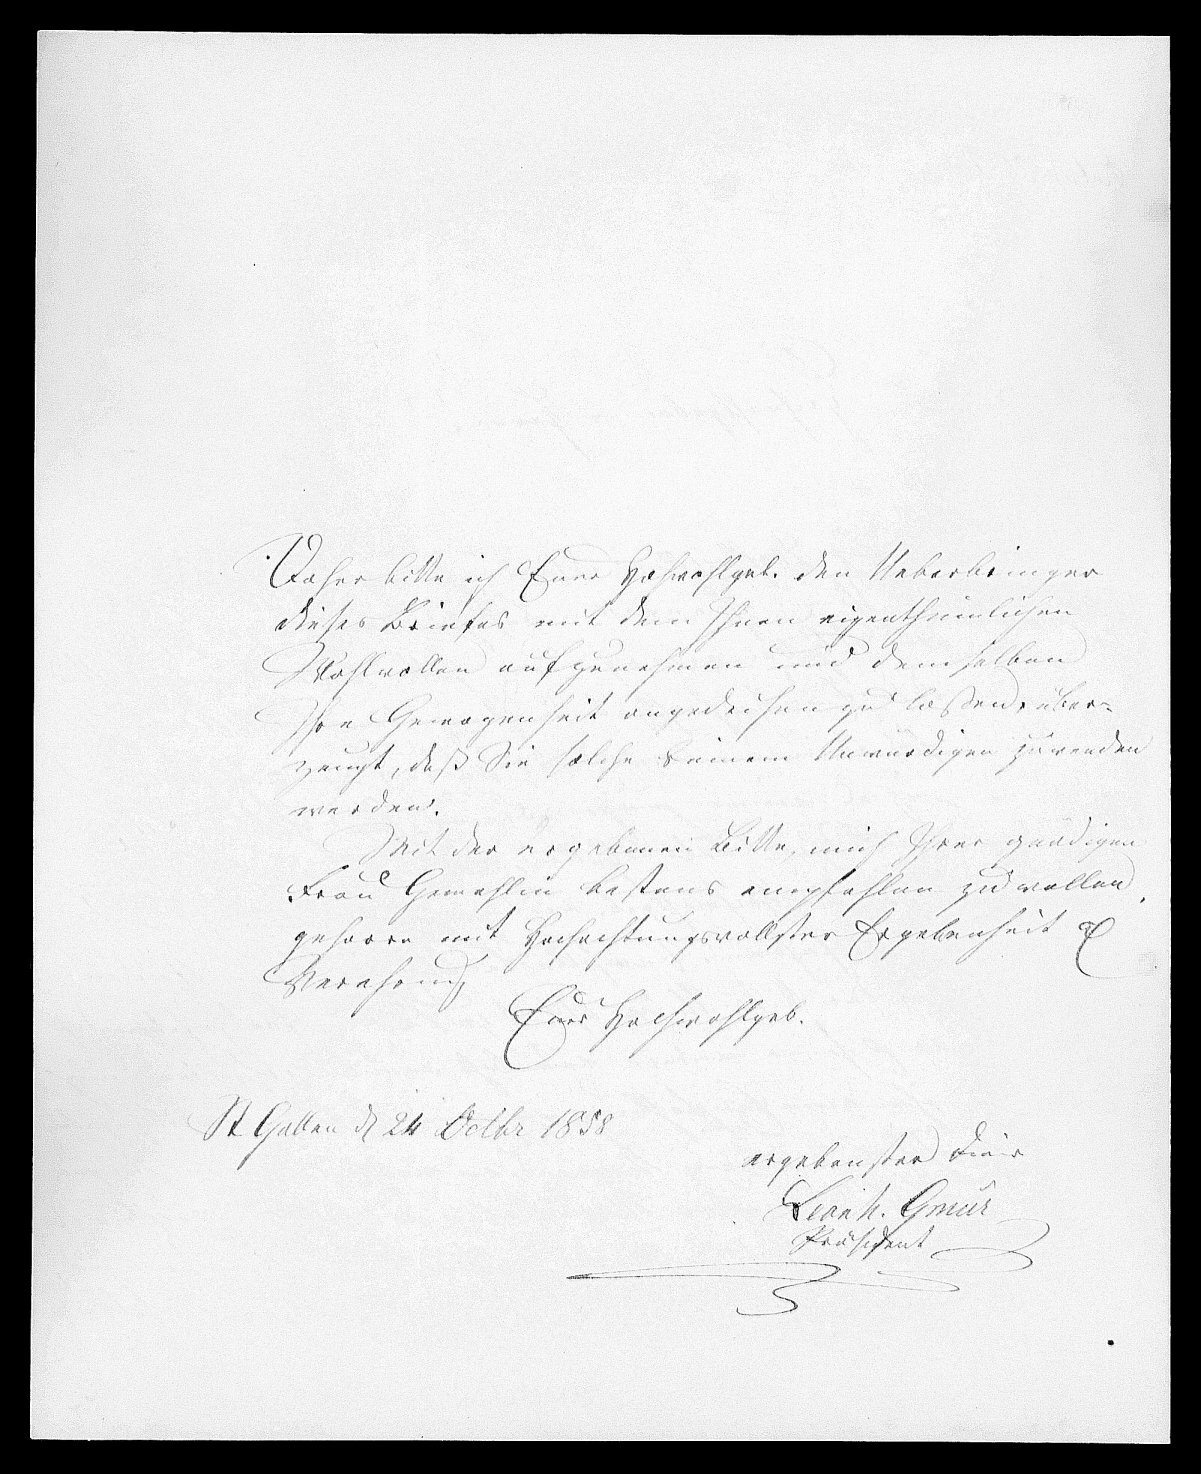 Daher bitte ich Euer Hochwohlgeb. den Ueberbringer
dieses Briefes mit dem Ihnen eigenthümlichen
Wohlwollen aufzunehmen und demselben
Ihre Gewogenheit angedeihen zu lassen, über-
zeugt, daß Sie solche keinem Unwürdigen zuwenden
werden.
Mit der ergebenen Bitte, mich Ihrer gnädigen
Frau Gemahlin bestens empfehlen zu wollen,
geharre mit Hochachtungsvollster Ergebenheit &
Verehrung
Euer Hochwohlgeb.
St Gallen d 24 Octbr 1858
ergebenster
Leonh. Gmür
Präsident